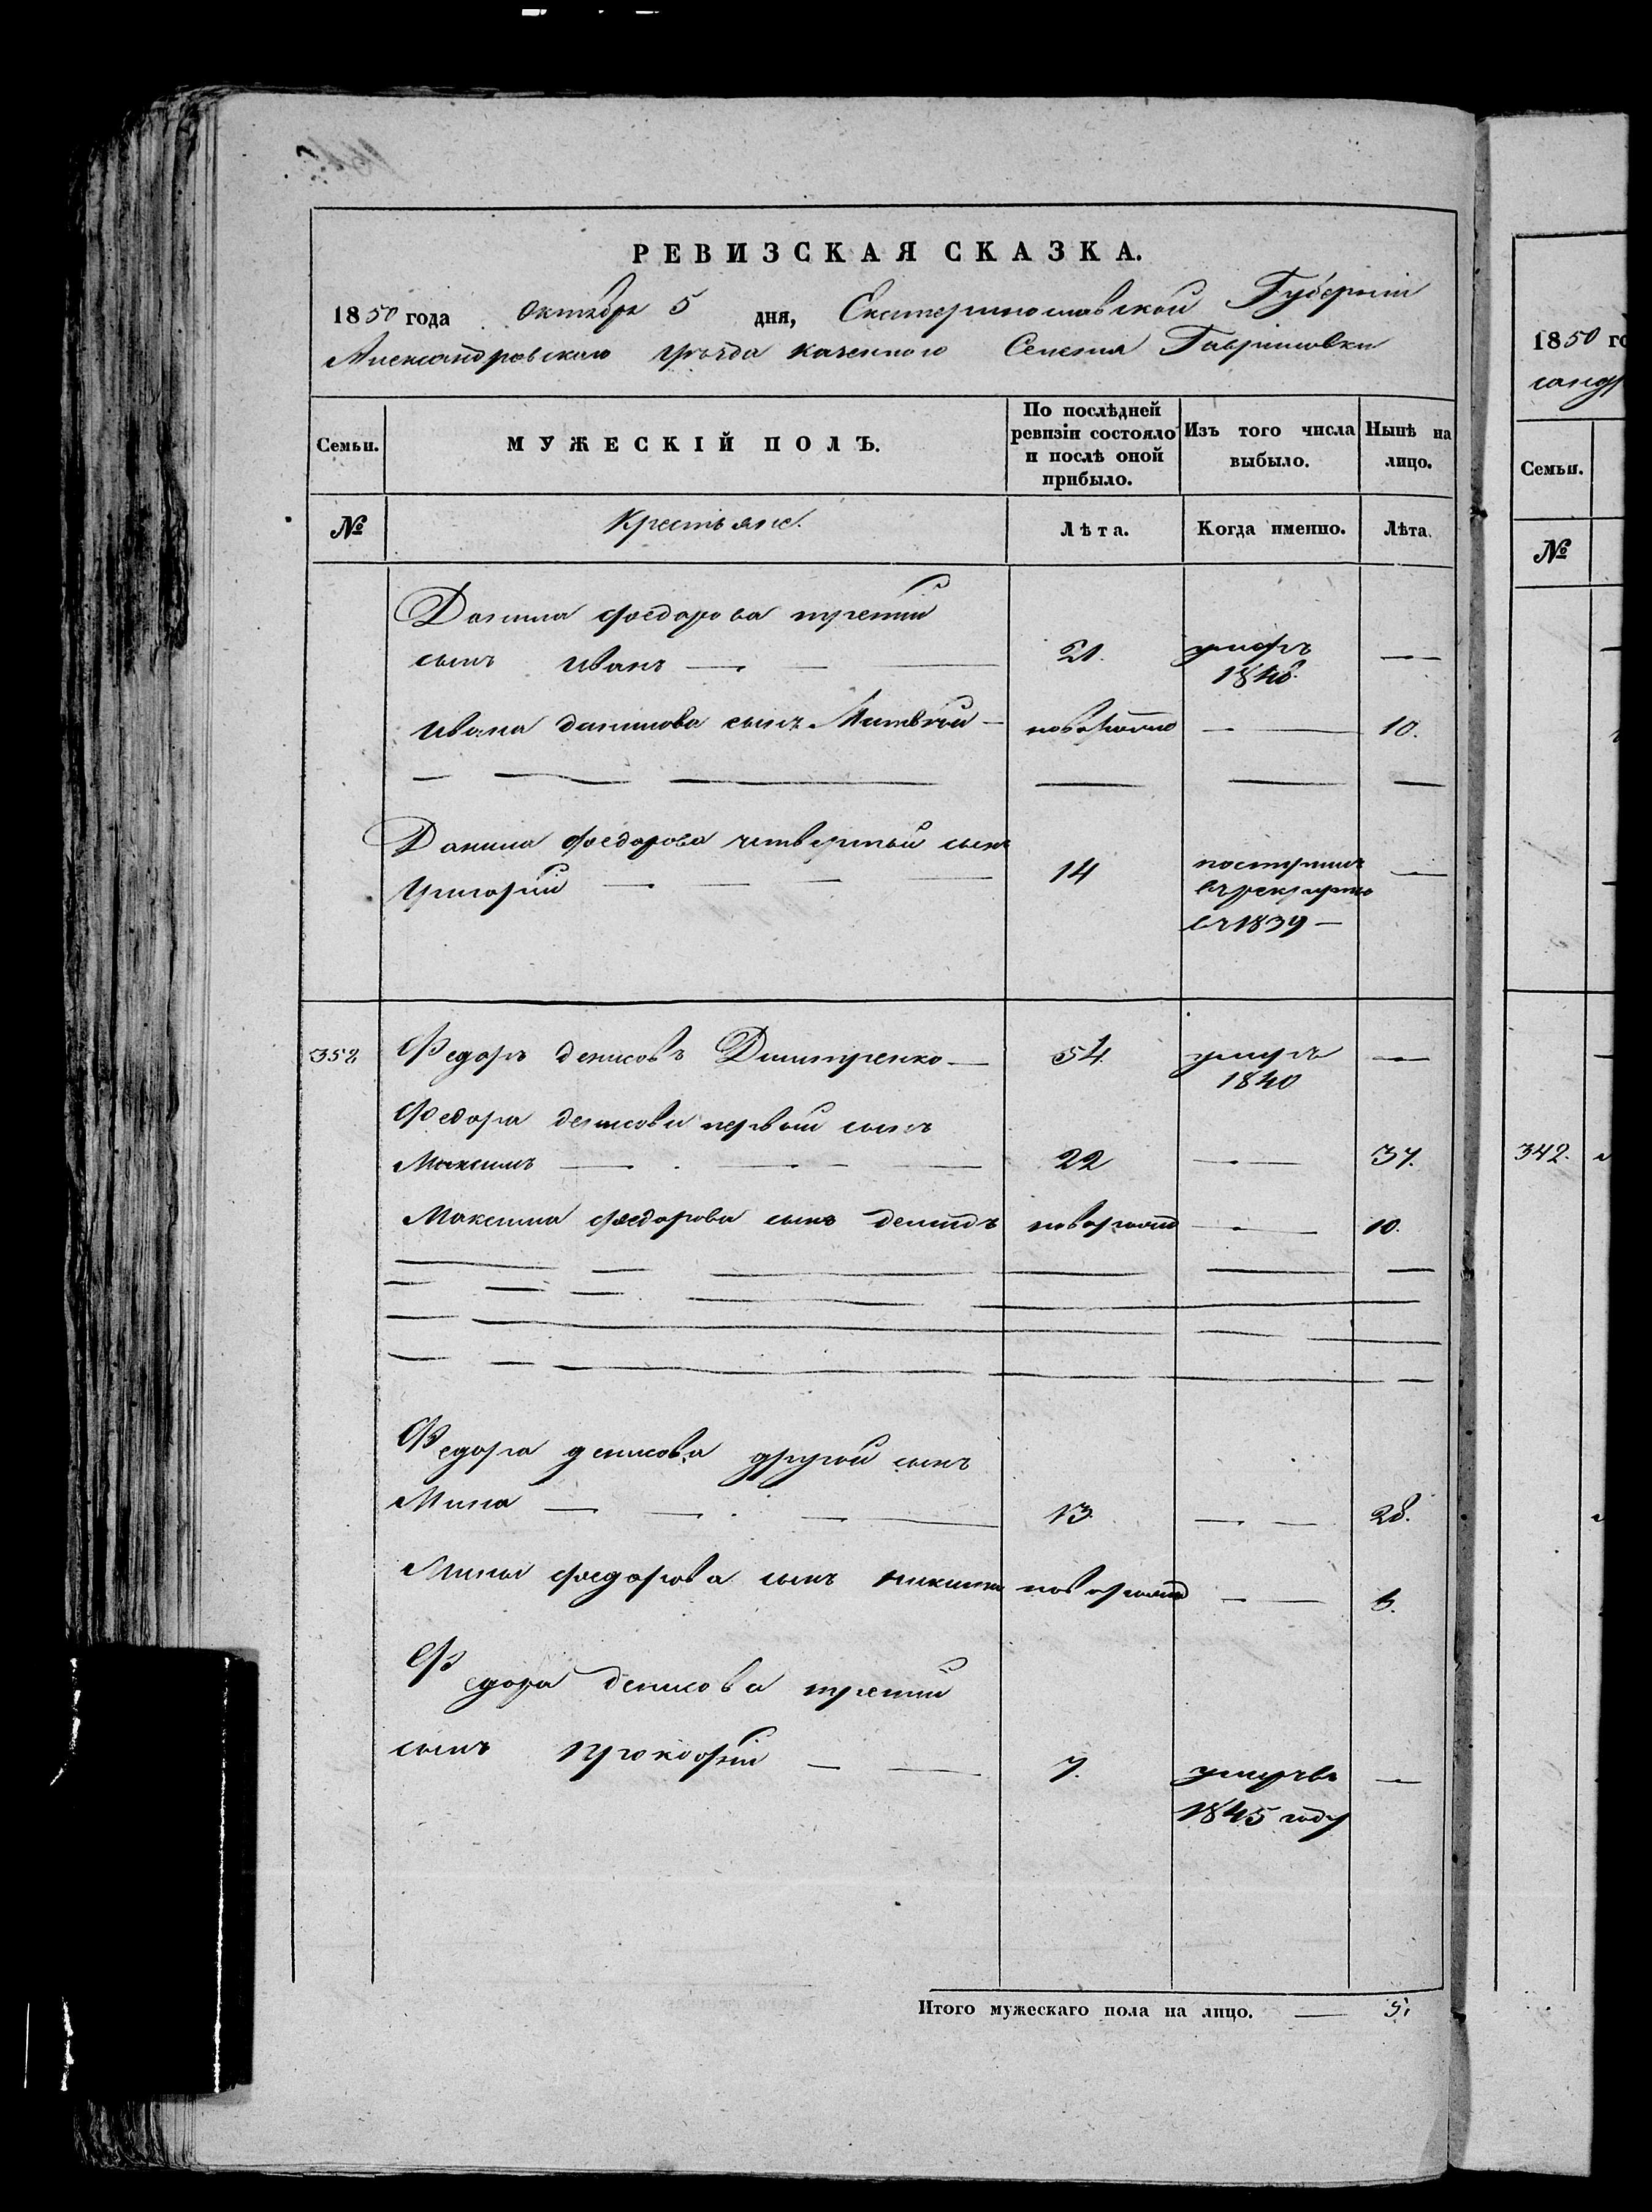 РЕВИЗСКАЯ СКАЗКА.
1850 года Октября 5 дня, Екатеринославской Губернiи
Александровскаго уѣзда казенного Селенiя Гавриловки
Семьи.
МУЖЕСКІЙ ПОЛЪ.
По послѣдней ревизіи состояло и послѣ оной прибыло.
Изъ того числа выбыло.
Нынѣ на лицо.
№
Крестьяне.
Лѣта.
Когда именно.
Лѣта.
Данила федорова третiй
сынъ иванъ — 21. умеръ 1848. —
ивана данилова сынъ Матвѣй — новорожд — 10.
Данила федорова четвертый сынъ
Григорiй — 14 поступилъ
въ рекруты
въ 1839 —
352 Федоръ денисовъ Дмитренко — 54. умеръ 1840 —
Федора денисова первый сынъ
Максимъ — 22 — 37.
Максима федорова сынъ демидъ новорожд — 10.
Федора денисова другой сынъ
Мина — 13. — 28.
Мины федорова сынъ никита новорожд —
Федора денисова третiй
сынъ Прокофiй — 7. умеръ въ —
1845 году
Итого мужескаго пола на лицо. — 5.
1850 го
Семьи.
№
342.